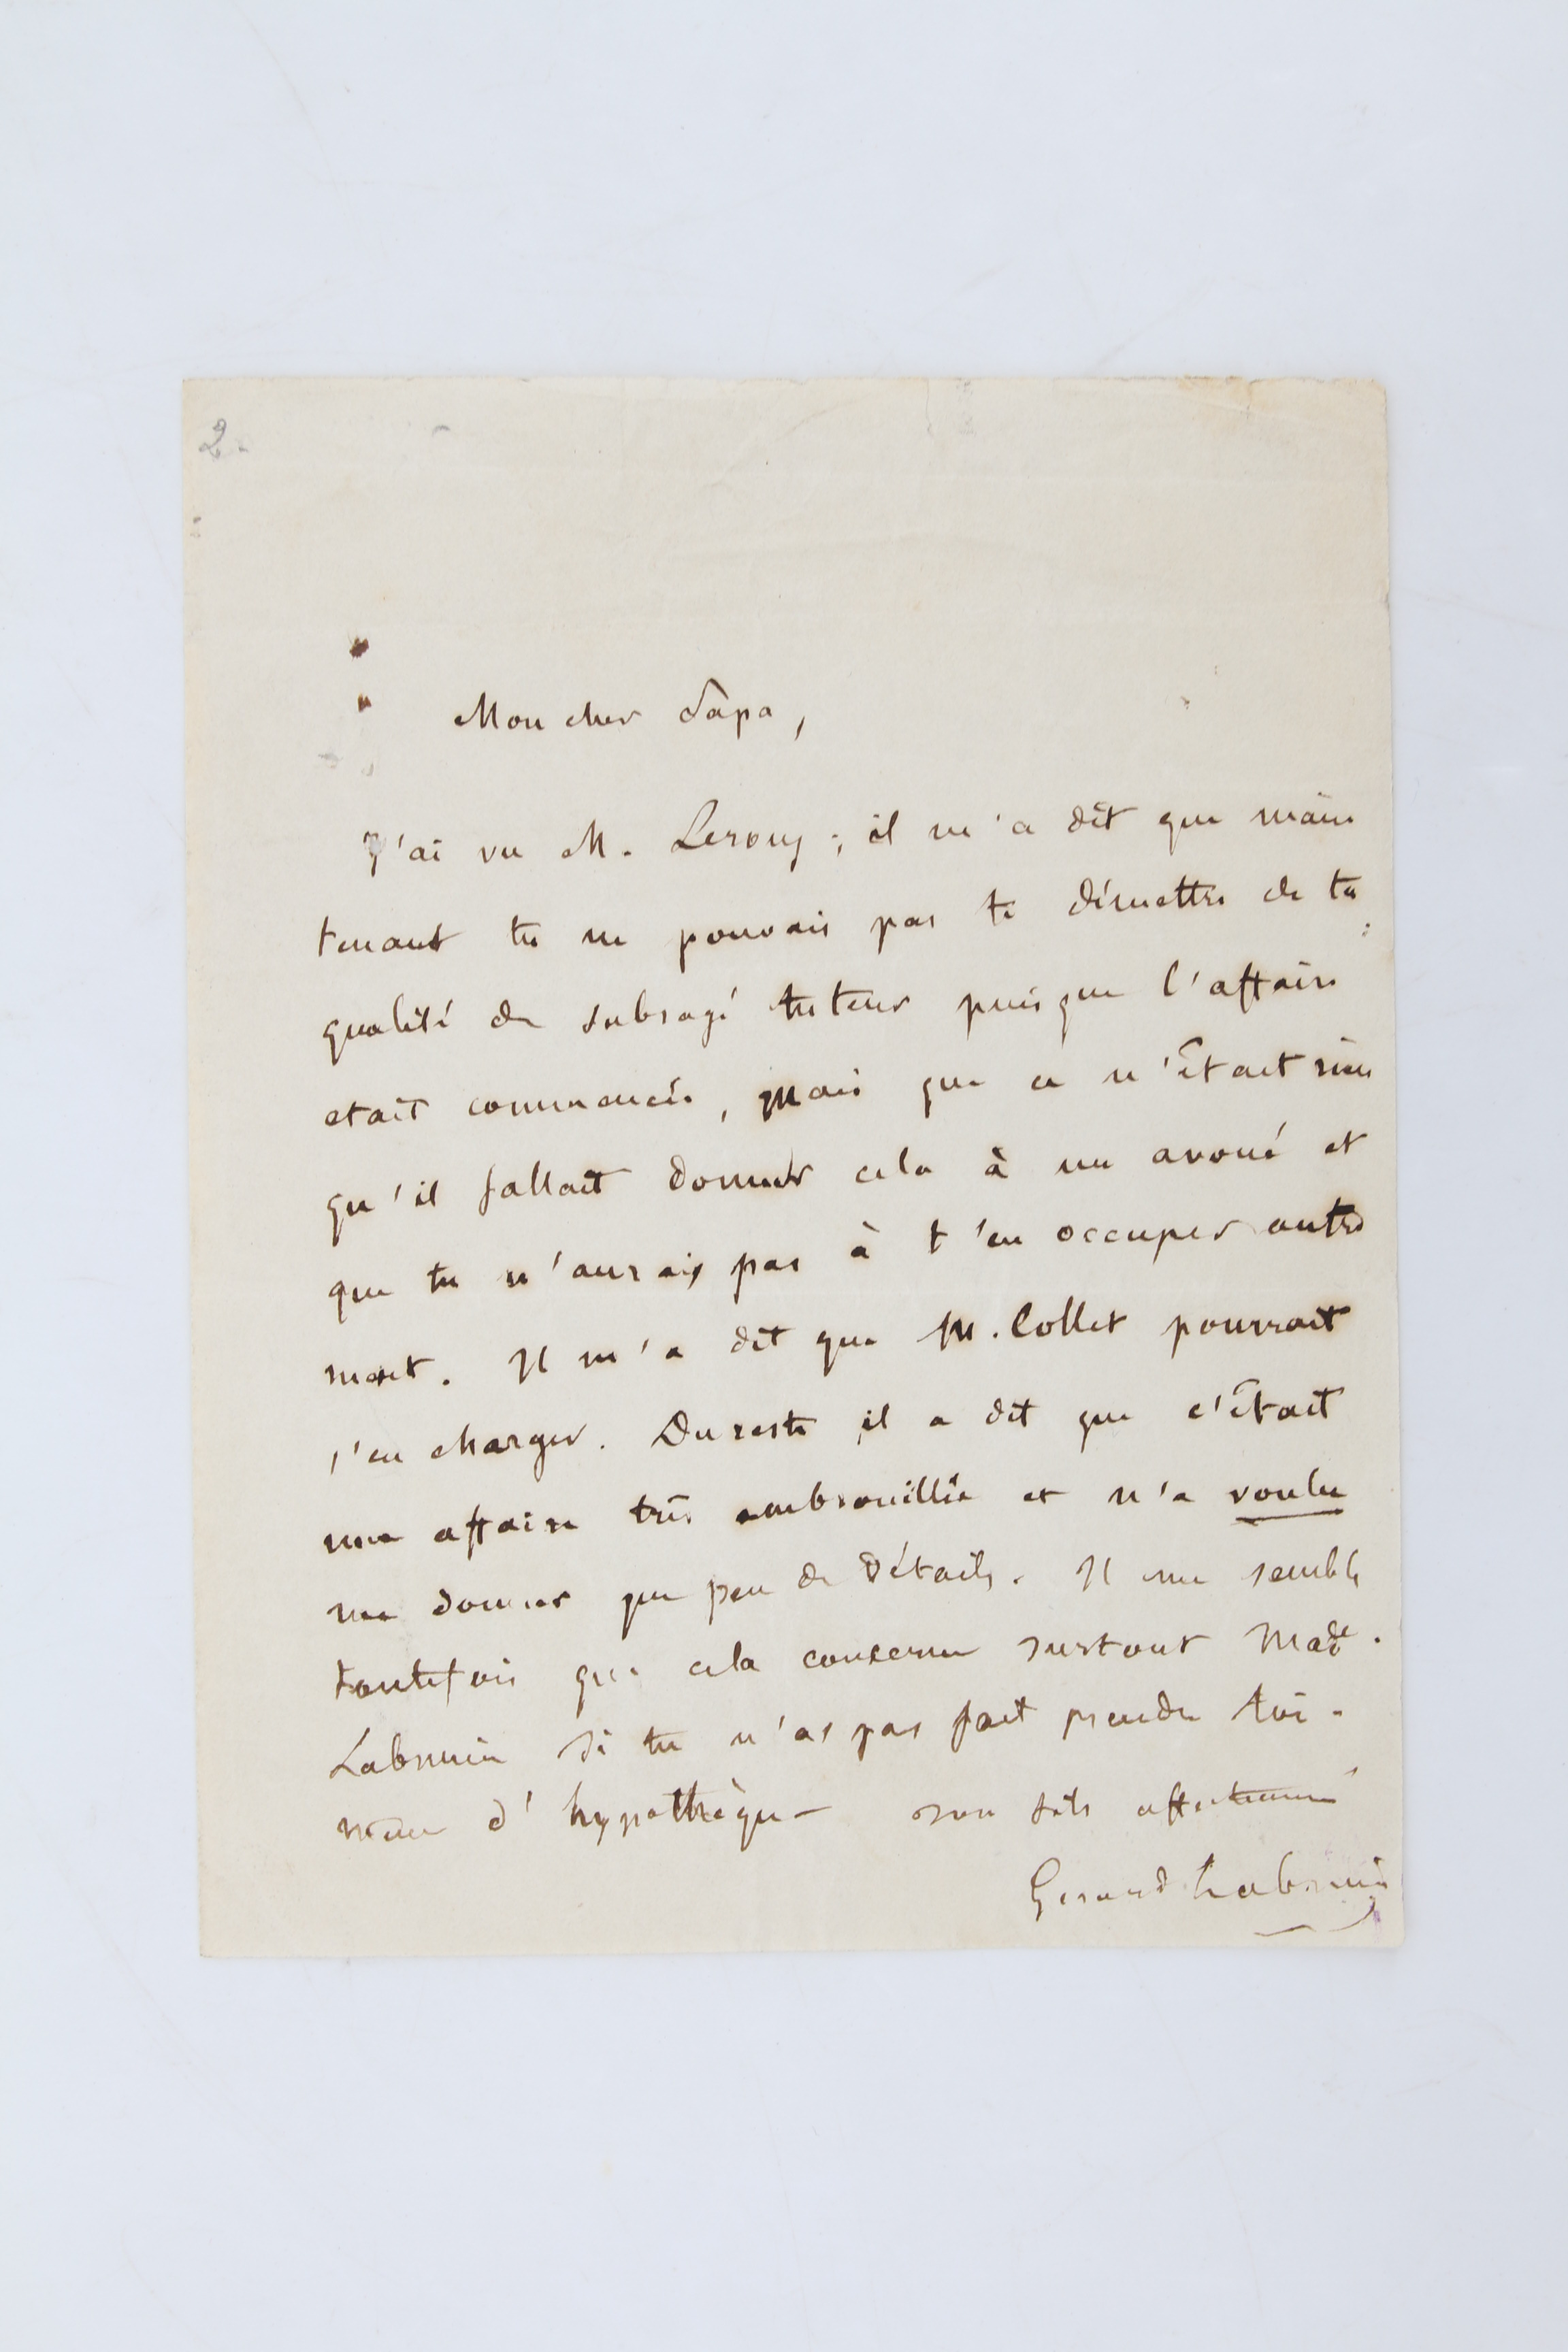 2.
Mon cher Papa,
J'ai vu M. Leroux ; il m'a dit que main
tenant tu ne pouvais pas te démettre de ta
qualité de subrogé tuteur puisque l'affaire
etait commencée, mais que ce n'était rien
qu'il fallait donner cela à un avoué et
que tu n'aurais pas à t'en occuper autre
ment. Il m'a dit que M. Collet pourrait
s'en charger. Du reste il a dit que c'était
une affaire très embrouillée et n'a voulu
me donner que peu de détails. Il me semble
toutefois que cela concerne surtout Made.
Labrunie si tu n'as pas fait prendre toi-
même d'hypothèque — ton fils affectionné
Gerard Labrunie